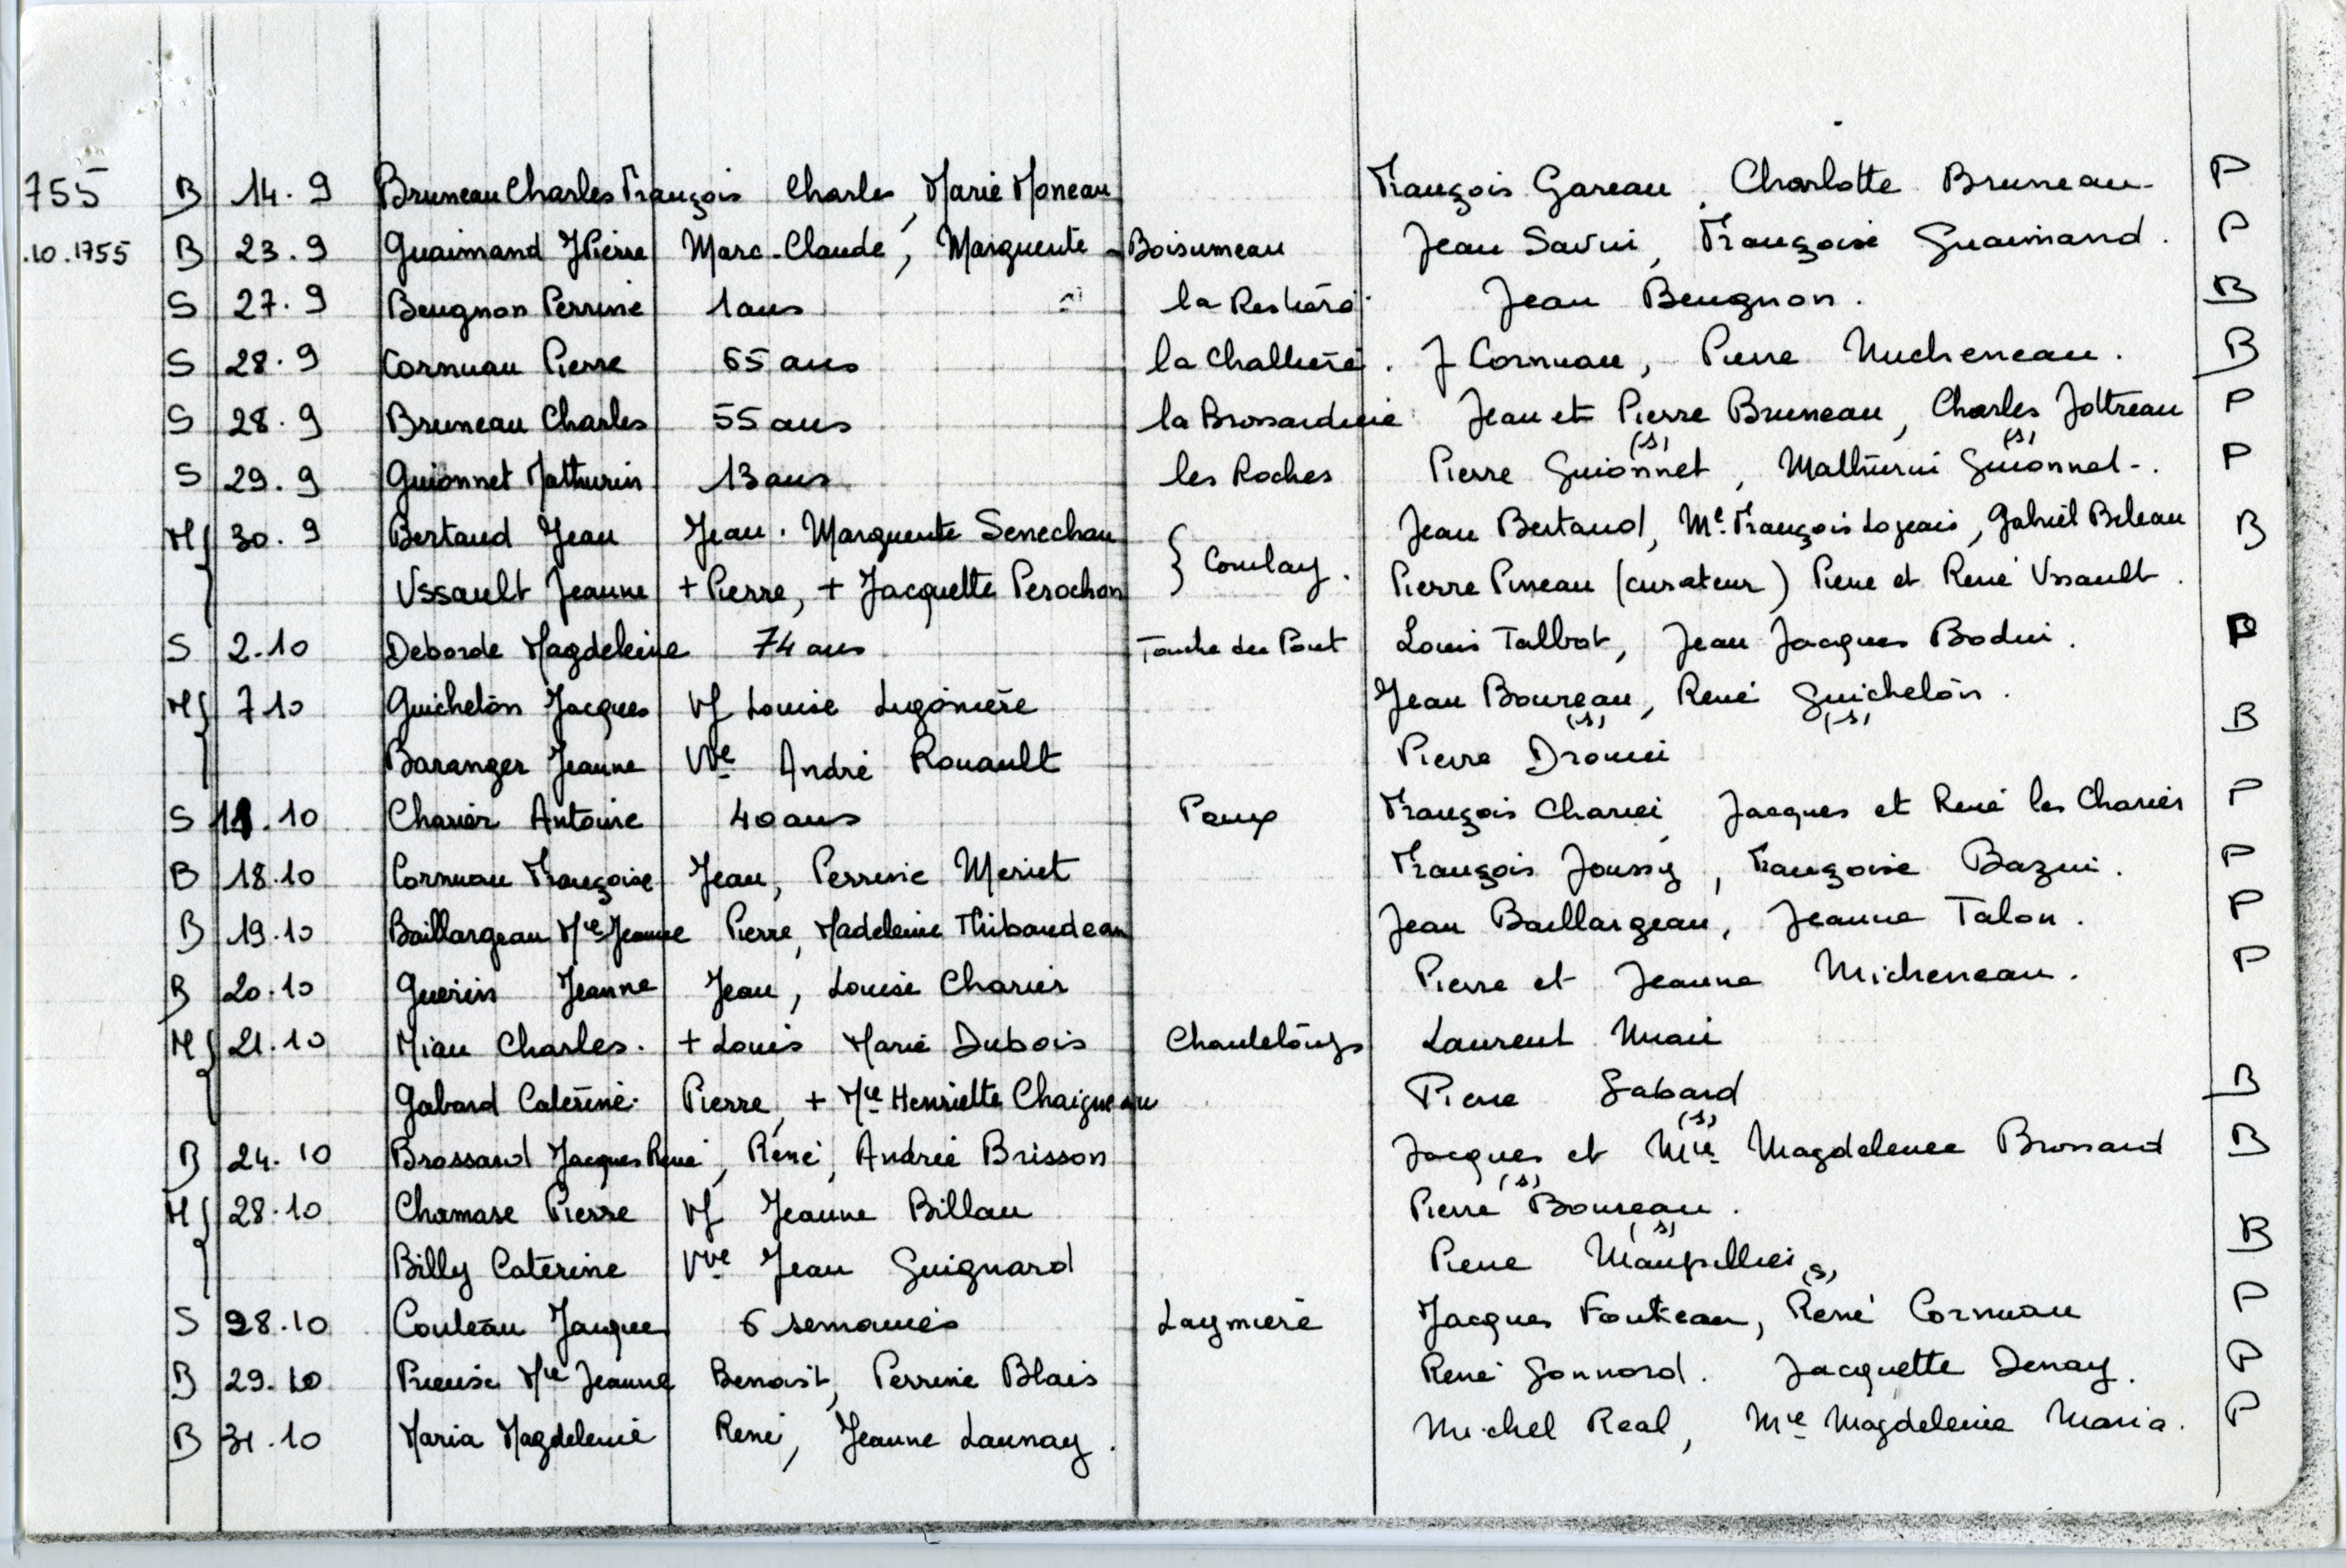 755 B 14.9 Bruneau Charles François Charles, Marie Moneau François Gareau, Charlotte Bruneau P
.10.1755 B 23.9 Guaimand JPierre Marc-Claude, Marguerite Boisumeau Jean Savin, Françoise Guaimand. P
S 27.9 Beugnon Perrine 1 ans Jean Beugnon. B
S 28.9 Cornuau Pierre 65 ans J Cornuau, Pierre Micheneau. B
S 28.9 Bruneau Charles 55 ans la Brossarderie Jean et Pierre Bruneau, Charles Jottreau P
S 29.9 Guionnet Mathurin 13 ans les Roches Pierre Guionnet (s), Mathurin Guionnet (s). P
M { 30.9 Bertaud Jean Jean. Marguerite Senechau } Coulay. Jean Bertaud, Me. François Logeais, Gabriel Beleau B
Ussault Jeanne + Pierre, + Jacquette Perochon Pierre Pineau (curateur) Pierre et René Ussault.
S 2.10 Deborde Magdeleine 74 ans Touche du Pont Louis Talbot, Jean Jacques Bodin. P
M { 7 10 Guichelôn Jacques Vf Louise Lugonière Jean Boureau (s), René Guichelôn (s). B
Baranger Jeanne Vve André Rouault Pierre
S 11.10 Charier Antoine 40 ans François Charier, Jacques et René les Chariers P
B 18.10 Cornuau Françoise Jean, Perrine Meriet François Joussy, Françoise Bazin. P
B 19.10 Baillargeau Mie Jeanne Pierre, Madeleine Thibaudeau Jean Baillargeau, Jeanne Talon. P
B 20.10 Guerin Jeanne Jean, Louise Charier Pierre et Jeanne Micheneau. P
M { 21.10 Miau Charles. + Louis Marie Dubois Laurent
Gabard Caterine. Pierre, + Mie Henriette Chaigneau Pierre Gabard (s) B
B 24.10 Brossard Jacques René, René, Andrée Brisson Jacques (s) et Mie Magdeleine Brossard B
M { 28.10 Chamare Pierre Vf Jeanne Billau Pierre Boureau (s).
Billy Caterine Vve Jean Guignard Pierre Maupillier (s) B
S 28.10 Couleau Jacques 6 semaines Laymiere Jacques Fouteau, René Cornuau P
B 29.10 Mie Jeanne Benoist, Perrine Blais René Gonnord. Jacquette Denay. P
B 31.10 Maria Magdeleine René, Jeanne Launay. Michel Real, Mie Magdeleine Maria. P